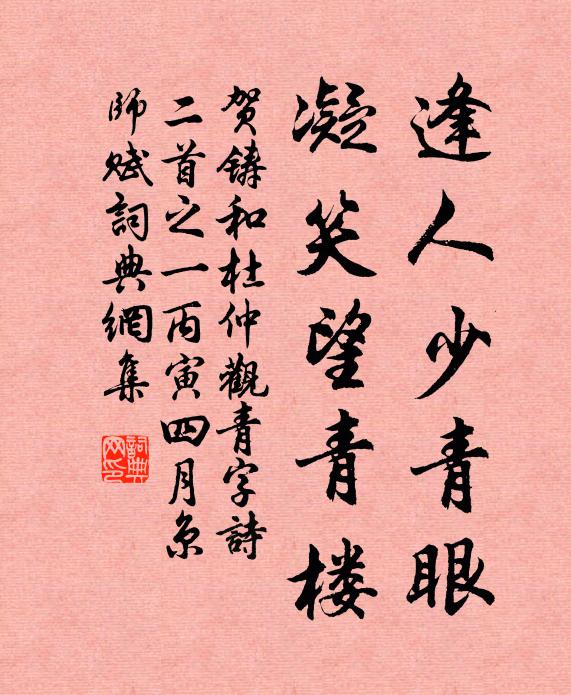 逢人少青眼
凝笑望青楼
贺铸和杜仲觀青字詩
二首之一丙寅四月京
師賦詞典網集
詞典网印